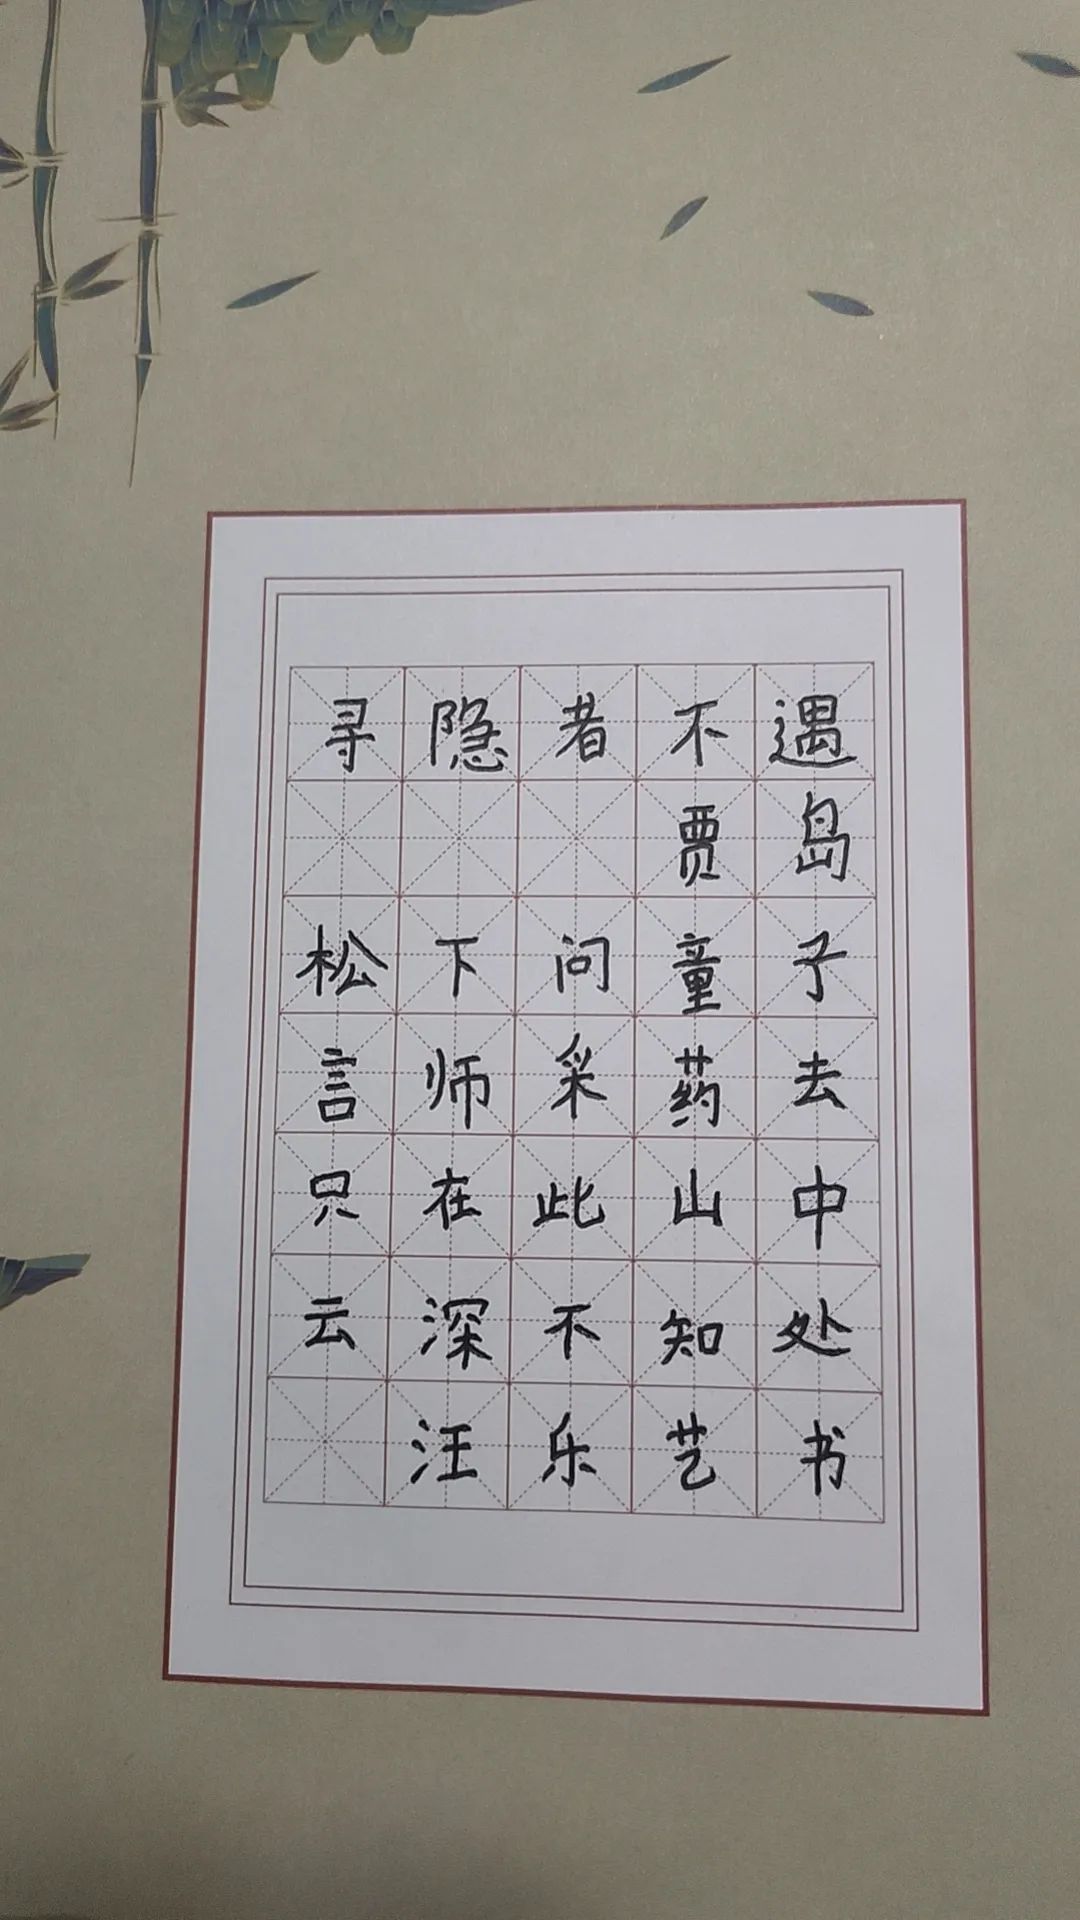 寻隐者不遇
贾岛
松下问童子
言师采药去
只在此山中
云深不知处
汪乐艺书